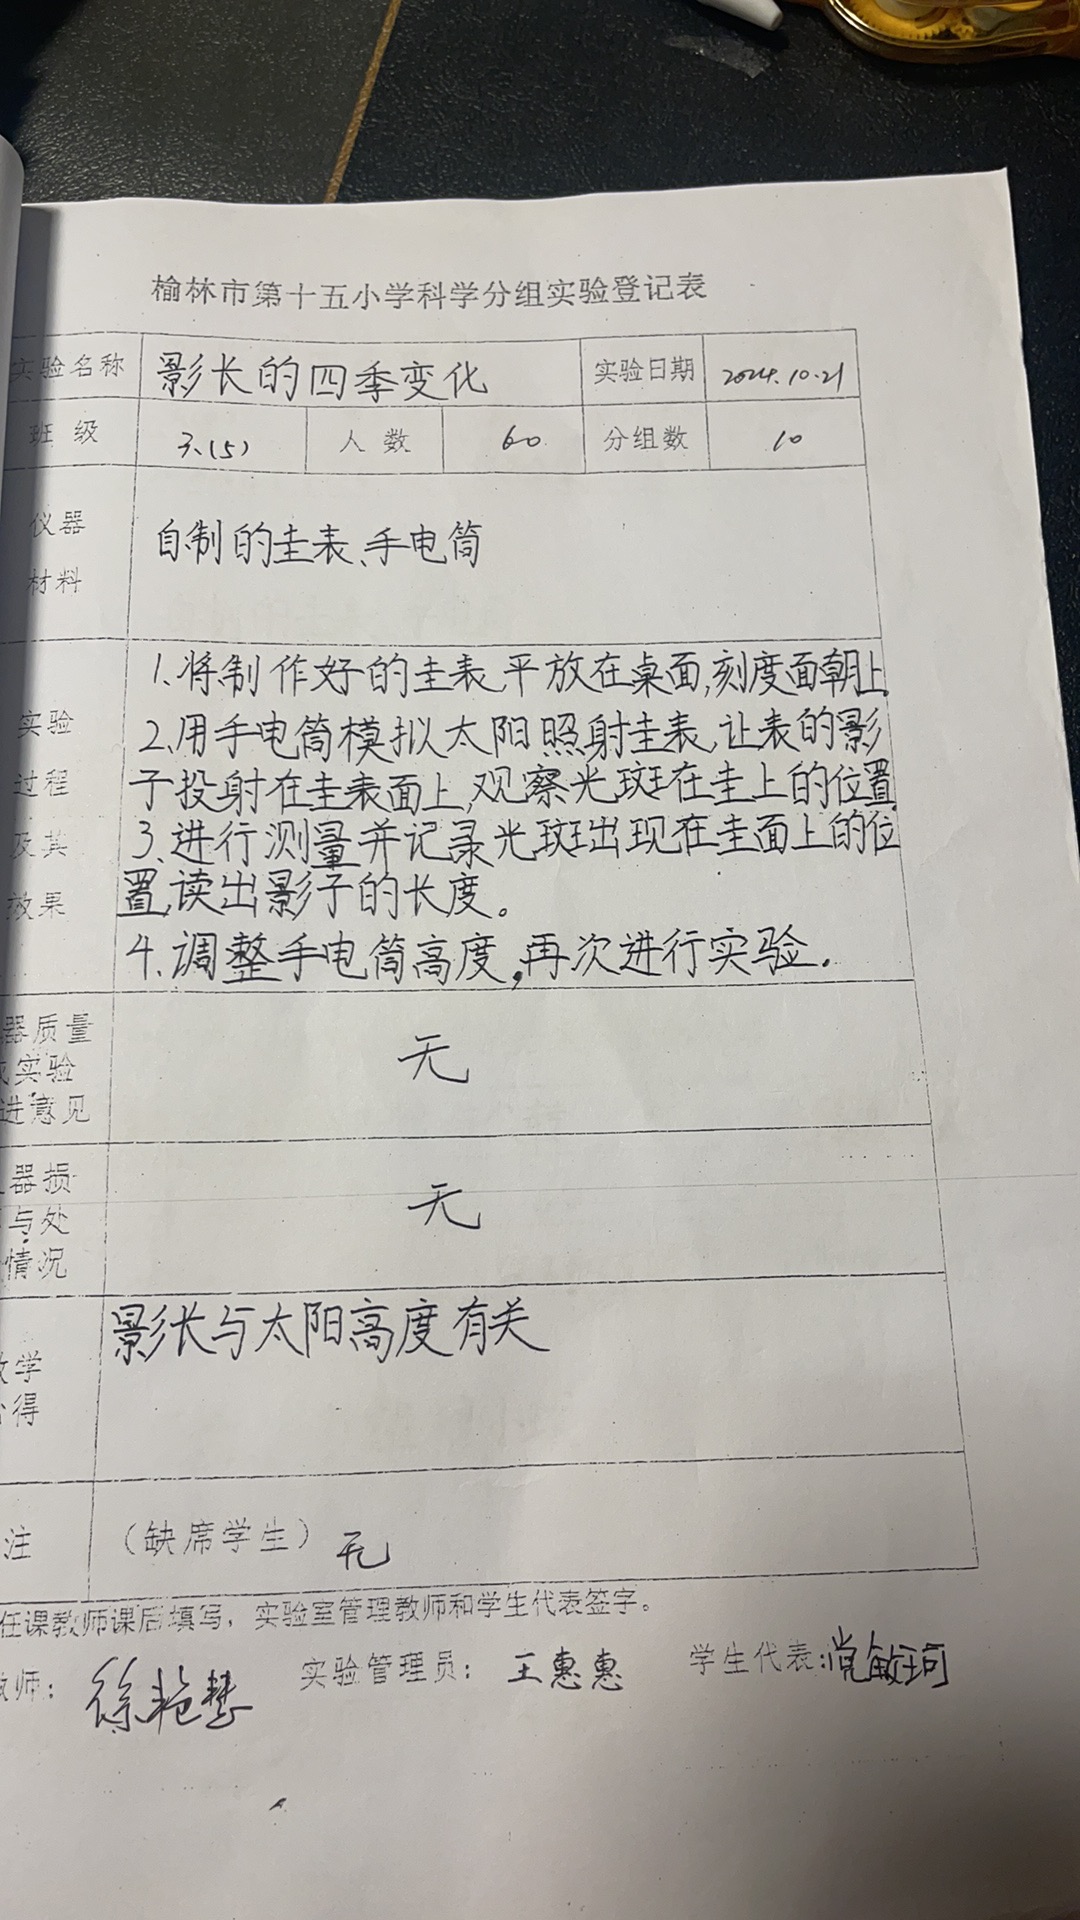 榆林市第十五小学科学分组实验登记表
实验名称 影长的四季变化 实验日期 2024.10.21
班级 3.(5) 人数 60 分组数 10
仪器
材料
自制的圭表、手电筒
1.将制作好的圭表,平放在桌面,刻度面朝上.
实验
2.用手电筒模拟太阳照射圭表,让表的影
过程
子投射在圭表面上,观察光斑在圭上的位置.
及其
3.进行测量并记录光斑出现在圭面上的位
效果
置,读出影子的长度。
4.调整手电筒高度,再次进行实验.
器质量
实验
进意见
无
器损
与处
情况
无
影长与太阳高度有关
学
得
注 (缺席学生) 无
任课教师课后填写,实验室管理教师和学生代表签字。
师: 徐艳慧 实验管理员: 王惠惠 学生代表:党敏珂